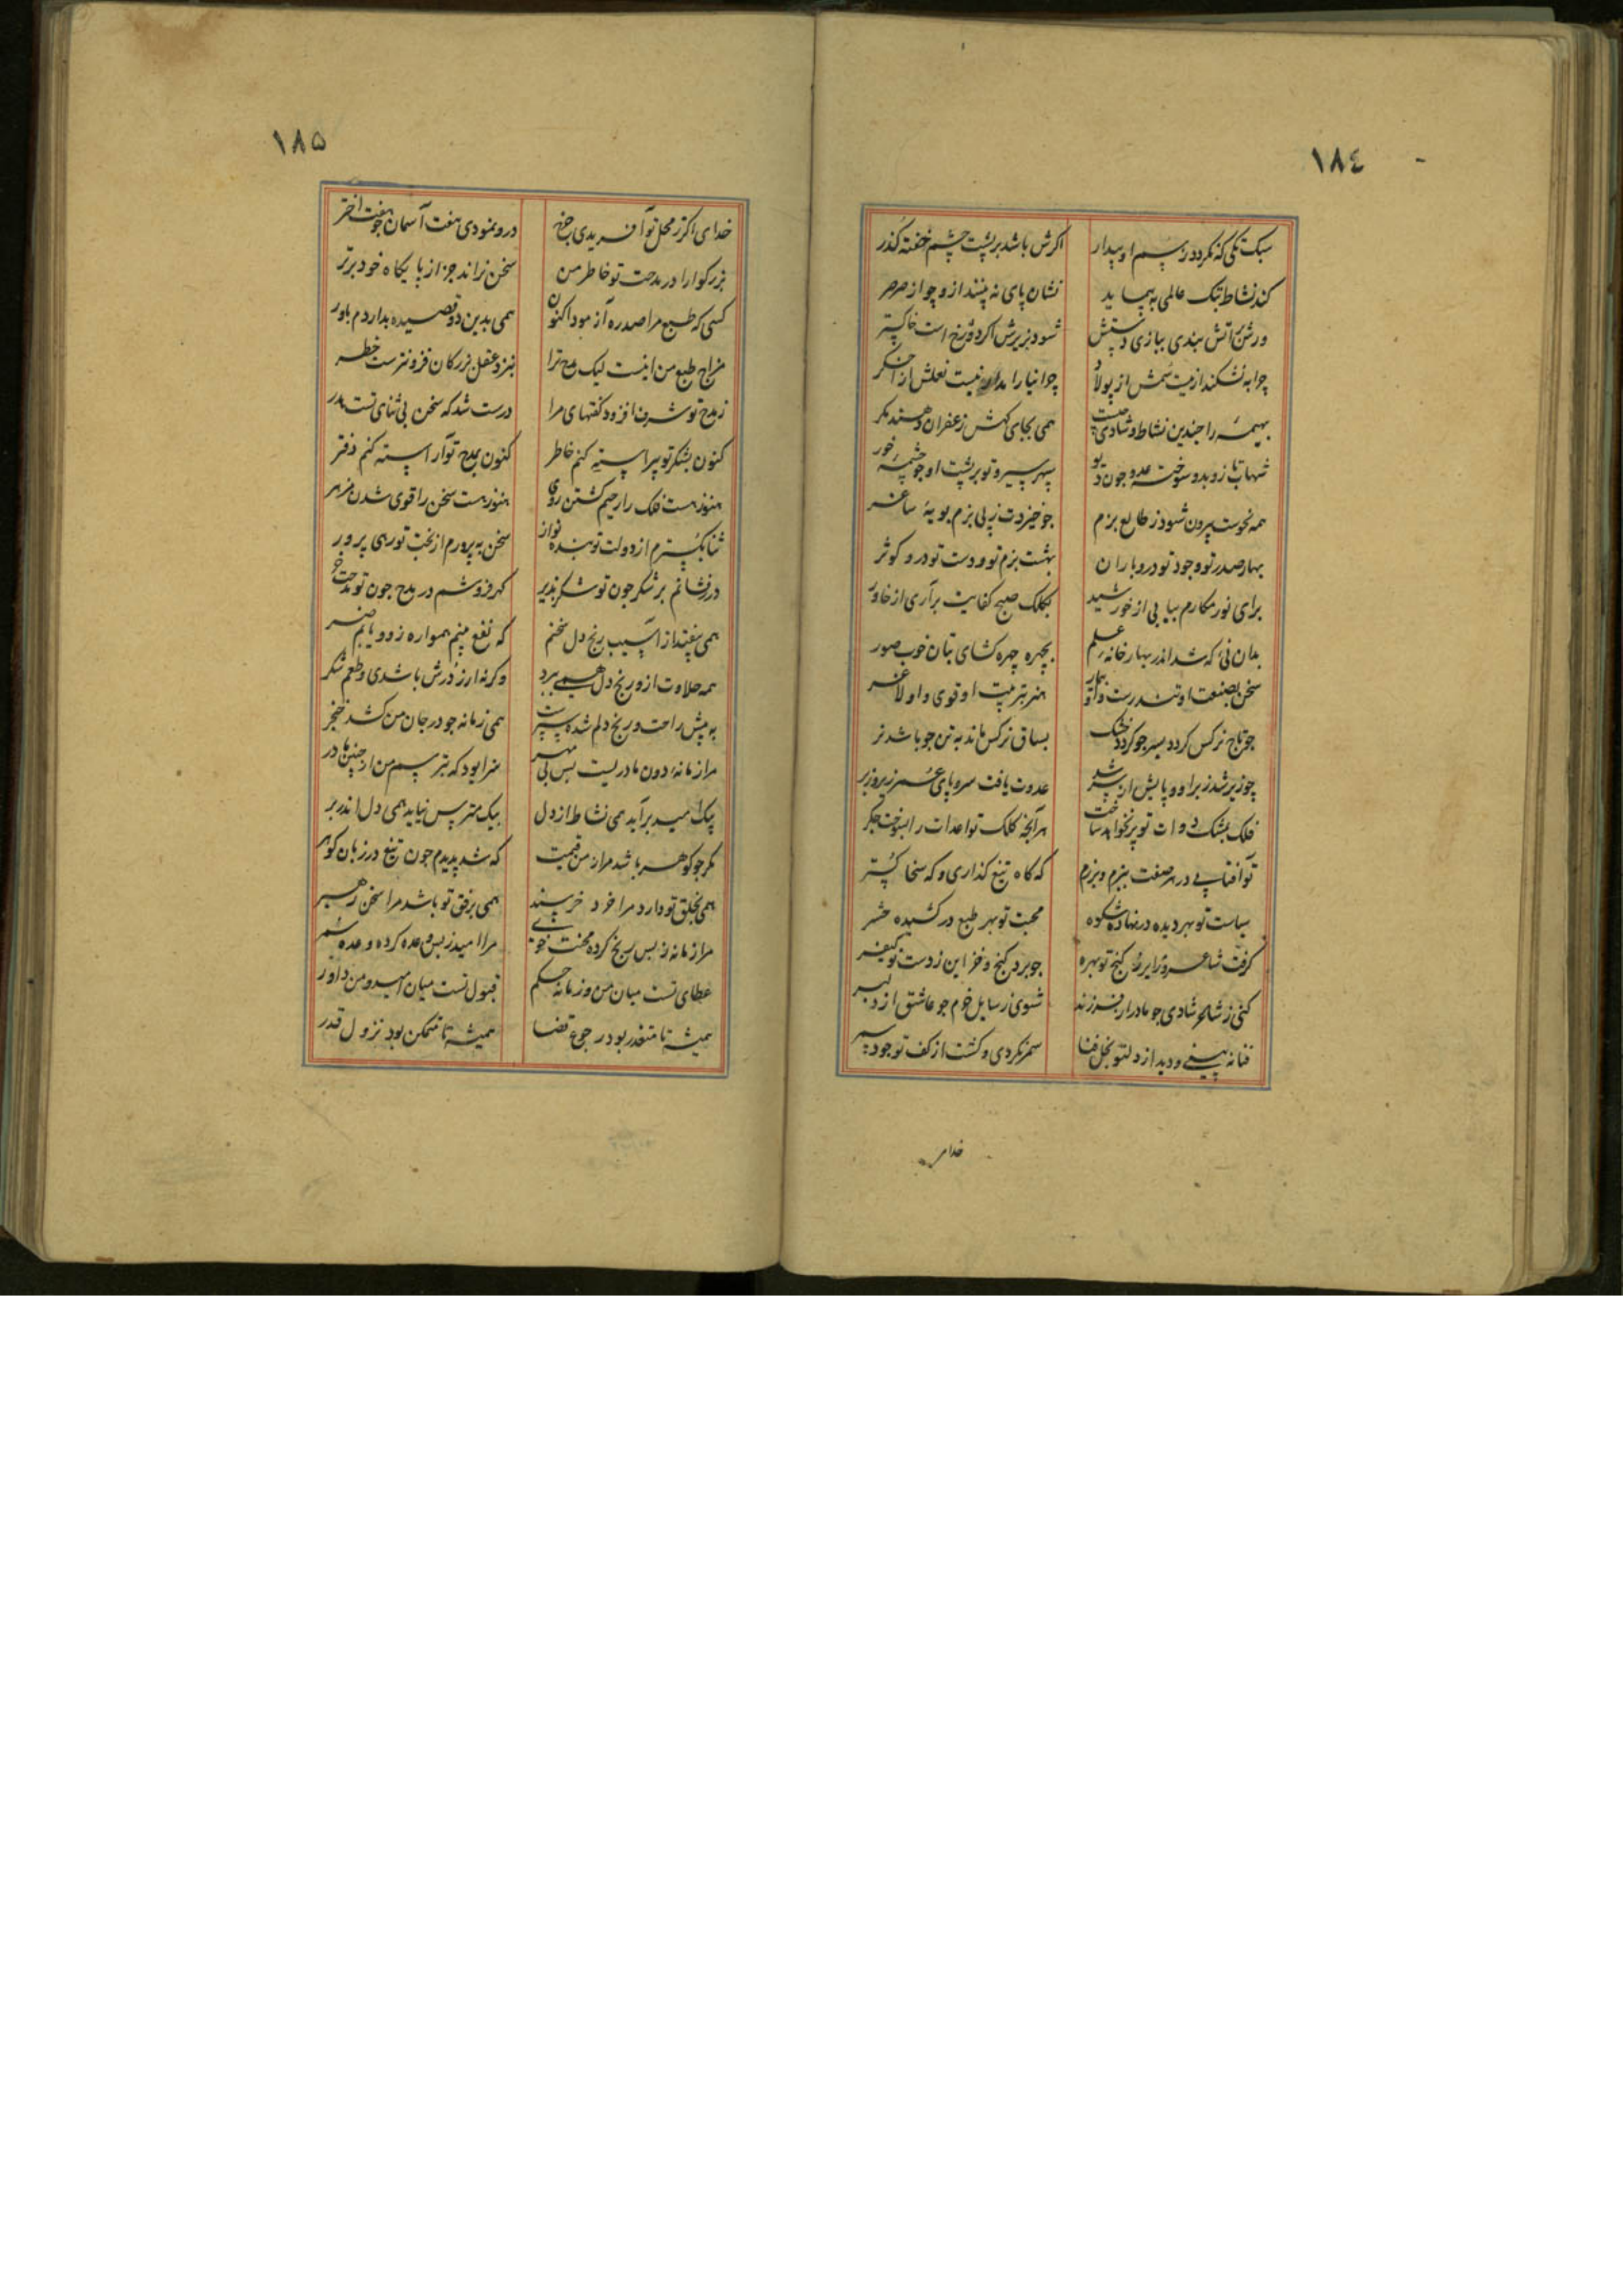 ١٨٤
سبک تکی که نکردد ز سم او بیدار اکرش باشد بر پشت چشم خفته کذر
کند نشاط بتک عالمی به پیماید نشان پای نه پینند ازو چو از صرصر
ورش ز آتش بندی ببازی دستش شود بزیرش اکر دوزخ است خاکستر
چرا به نشکند ار نیست سمش از پولاد چو انیا را نیست نعلش از اخکر
بهیمه را چندین نشاط و شادی چیست همی بجای کهش زعفران دهند مکر
شهاب تازد و بدو سوخت عدو چون دیو سپهر سیر و تو بر پشت او چو چشمه خور
همه نحوست بیرون شود ز طالع بزم چو خیزدت ز پی بزم بویهٔ ساغر
بهار صدر تو وجود تو درو باران بهشت بزم تو و دست تو درو کوثر
برای نور مکارم بیابی از خورشید بکلک صبح کفایت برآری از خاور
بدان نی که شد اندر بهار خانه علم بچهره چهره کشای بتان خوب صور
سخن بصنعت او تندرست و او بیمار هنر بتربیت او قوی و او لاغر
چو تاج نرکس کردد بسر چو کردد خشک بساق نرکس ماند به تن چو باشد تر
چو زیر شد زبر او و پایش از سر شد عدوت یافت سر و پای عمر زیر و زبر
فلک بمشک دوات تو بر نخواهد ساخت هر آنچه کلک تو اعدات را بسوخت جکر
تو آفتابی در هر صفت ببزم و برزم که کاه تیغ کذاری و که سخا کستر
سیاست تو بهر دیده در نهاده شکوه محبت تو بهر طبع در کشیده حشر
کرفت شاعر و زایر ز کنج تو بهره چو برد کنج و خزاین ز دست تو کیفر
کنی ز شاعر شادی چو مادر از فرزند شوی ز سایل خرم چو عاشق از دلبر
فنا نه بینی و دید از دل تو بخل فنا سمر نکردی و کشت از کف تو جود سمر
خدای
١٨٥
خدای اکر ز محل تو آفریدی چرخ درو نمودی هفت آسمان چو هفت اختر
بزرکوارا در مدحت تو خاطر من سخن نراند جز از پایکاه خود برتر
کسی که طبع مرا صد ره آزمود اکنون همی بدین دو قصیده بداردم باور
مزاج طبع من اینست لیک مدح ترا بنزد عقل بزرکان فزونترست خطر
ز مدح تو شرف افزود کفتهای مرا درست شد که سخن بی ثنای تست هدر
کنون بشکر تو پیراسته کنم خاطر کنون بمدح تو آراسته کنم دفتر
هنوز هست فلک را رحیم کشتن روی هنوز هست سخن را قوی شدن
ثنا بکسترم از دولت تو بنده نواز سخن به پرورم از بخت تو رهی پرور
در فشانم بر شکر چون تو شکر پذیر کهر فروشم در مدح چون تو مدحت خر
همی بیفتد از آسیب رنج دل سخنم که نفع بینم همواره زو و یابم ضر
همه حلاوت ازو رنج دل همی ببرد وکر نه ارز درش باشدی و طعم شکر
به پیش راحت و رنج دلم شده ست سپر همی زمانه چو در جان من کشد خنجر
مرا زمانه دون مادریست بس بی مهر سزا بود که بترسم من از چنین مادر
بیک امید برآید همی نشاط از دل بیک بترس نیاید همی دل اندر بر
مکر چو کوهر باشد مرا ز من قیمت که شد پدیدم چون تیغ در زبان کوهر
همی بخلق تو دارد مرا خرد خرسند همی برفق تو باشد مرا سخن رهبر
مرا زمانه ز بس رنج کرده محنت خوی مرا امید ز بس وعده کرده وعده شمر
عطای تست میان من و زمانه حکم قبول تست میان امید و من داور
همیشه تا متعذر بود رجوع قضا همیشه تا متمکن بود نزول قدر